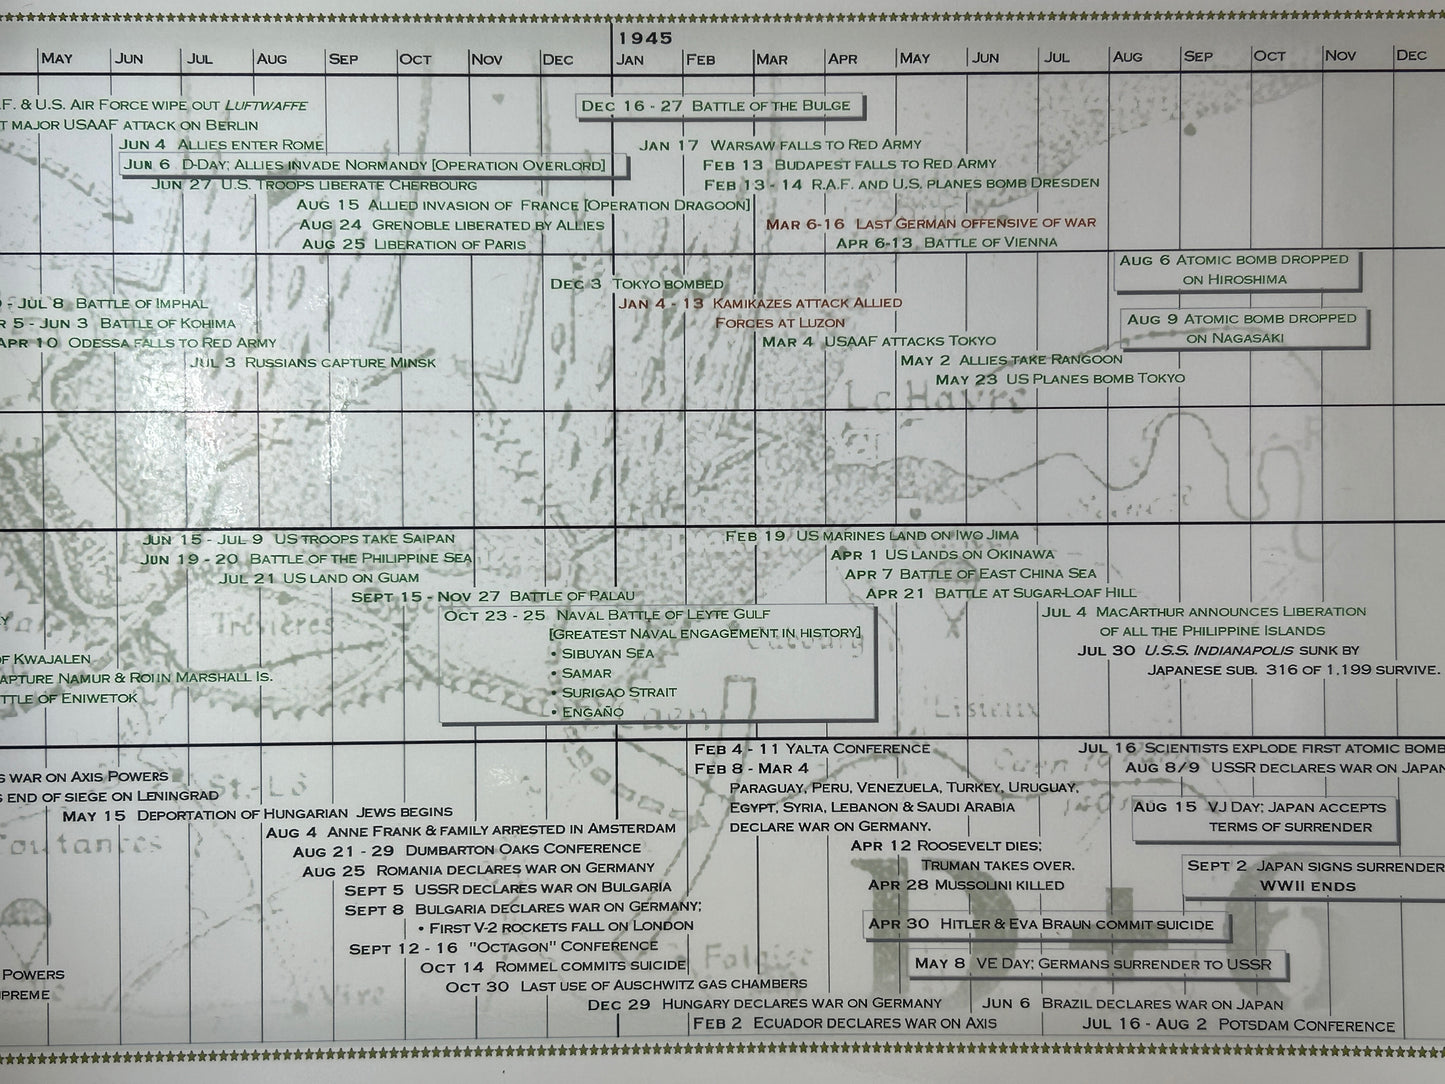 1945
MAY JUN JUL AUG SEP OCT NOV DEC JAN FEB MAR APR MAY JUN JUL AUG SEP OCT NOV DEC
.F. & U.S. AIR FORCE WIPE OUT LUFTWAFFE
DEC 16 - 27 BATTLE OF THE BULGE
T MAJOR USAAF ATTACK ON BERLIN
JUN 4 ALLIES ENTER ROME
JAN 17 WARSAW FALLS TO RED ARMY
JUN 6 D-DAY; ALLIES INVADE NORMANDY [OPERATION OVERLORD]
FEB 13 BUDAPEST FALLS TO RED ARMY
JUN 27 U.S. TROOPS LIBERATE CHERBOURG
FEB 13 - 14 R.A.F. AND U.S. PLANES BOMB DRESDEN
AUG 15 ALLIED INVASION OF FRANCE [OPERATION DRAGOON]
AUG 24 GRENOBLE LIBERATED BY ALLIES
MAR 6-16 LAST GERMAN OFFENSIVE OF WAR
AUG 25 LIBERATION OF PARIS
APR 6-13 BATTLE OF VIENNA
AUG 6 ATOMIC BOMB DROPPED
ON HIROSHIMA
DEC 3 TOKYO BOMBED
- JUL 8 BATTLE OF IMPHAL
JAN 4 - 13 KAMIKAZES ATTACK ALLIED
FORCES AT LUZON
R 5 - JUN 3 BATTLE OF KOHIMA
AUG 9 ATOMIC BOMB DROPPED
ON NAGASAKI
APR 10 ODESSA FALLS TO RED ARMY
MAR 4 USAAF ATTACKS TOKYO
JUL 3 RUSSIANS CAPTURE MINSK
MAY 2 ALLIES TAKE RANGOON
MAY 23 US PLANES BOMB TOKYO
Le Havre
JUN 15 - JUL 9 US TROOPS TAKE SAIPAN
FEB 19 US MARINES LAND ON IWO JIMA
JUN 19 - 20 BATTLE OF THE PHILIPPINE SEA
APR 1 US LANDS ON OKINAWA
JUL 21 US LAND ON GUAM
APR 7 BATTLE OF EAST CHINA SEA
SEPT 15 - NOV 27 BATTLE OF PALAU
APR 21 BATTLE AT SUGAR-LOAF HILL
OCT 23 - 25 NAVAL BATTLE OF LEYTE GULF
[GREATEST NAVAL ENGAGEMENT IN HISTORY]
• SIBUYAN SEA
• SAMAR
• SURIGAO STRAIT
• ENGAÑO
JUL 4 MACARTHUR ANNOUNCES LIBERATION
OF ALL THE PHILIPPINE ISLANDS
JUL 30 U.S.S. INDIANAPOLIS SUNK BY
JAPANESE SUB. 316 OF 1,199 SURVIVE.
Trévières
OF KWAJALEN
APTURE NAMUR & ROI IN MARSHALL IS.
TTLE OF ENIWETOK
Cabourg
Caen
Lisieux
FEB 4 - 11 YALTA CONFERENCE
JUL 16 SCIENTISTS EXPLODE FIRST ATOMIC BOMB
FEB 8 - MAR 4
PARAGUAY, PERU, VENEZUELA, TURKEY, URUGUAY,
EGYPT, SYRIA, LEBANON & SAUDI ARABIA
DECLARE WAR ON GERMANY.
AUG 8/9 USSR DECLARES WAR ON JAPAN
S WAR ON AXIS POWERS
S END OF SIEGE ON LENINGRAD
St-Lô
MAY 15 DEPORTATION OF HUNGARIAN JEWS BEGINS
AUG 15 VJ DAY; JAPAN ACCEPTS
TERMS OF SURRENDER
AUG 4 ANNE FRANK & FAMILY ARRESTED IN AMSTERDAM
Coutances
AUG 21 - 29 DUMBARTON OAKS CONFERENCE
APR 12 ROOSEVELT DIES;
TRUMAN TAKES OVER.
AUG 25 ROMANIA DECLARES WAR ON GERMANY
SEPT 2 JAPAN SIGNS SURRENDER
WWII ENDS
SEPT 5 USSR DECLARES WAR ON BULGARIA
APR 28 MUSSOLINI KILLED
SEPT 8 BULGARIA DECLARES WAR ON GERMANY;
• FIRST V-2 ROCKETS FALL ON LONDON
APR 30 HITLER & EVA BRAUN COMMIT SUICIDE
D+6
SEPT 12 - 16 "OCTAGON" CONFERENCE
Falaise
OCT 14 ROMMEL COMMITS SUICIDE
MAY 8 VE DAY; GERMANS SURRENDER TO USSR
POWERS
OCT 30 LAST USE OF AUSCHWITZ GAS CHAMBERS
PREME
Vire
DEC 29 HUNGARY DECLARES WAR ON GERMANY
JUN 6 BRAZIL DECLARES WAR ON JAPAN
FEB 2 ECUADOR DECLARES WAR ON AXIS
JUL 16 - AUG 2 POTSDAM CONFERENCE